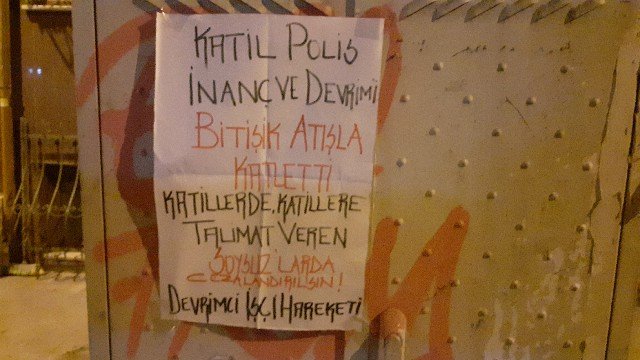 KATİL POLİS
İNANÇ VE DEVRİMİ
BİTİŞİK ATIŞLA
KATLETTİ
KATİLLERDE, KATİLLERE
TALİMAT VEREN
SOYSUZ'LARDA
CEZALANDIRILSIN!
DEVRİMCİ İŞÇİ HAREKETİ